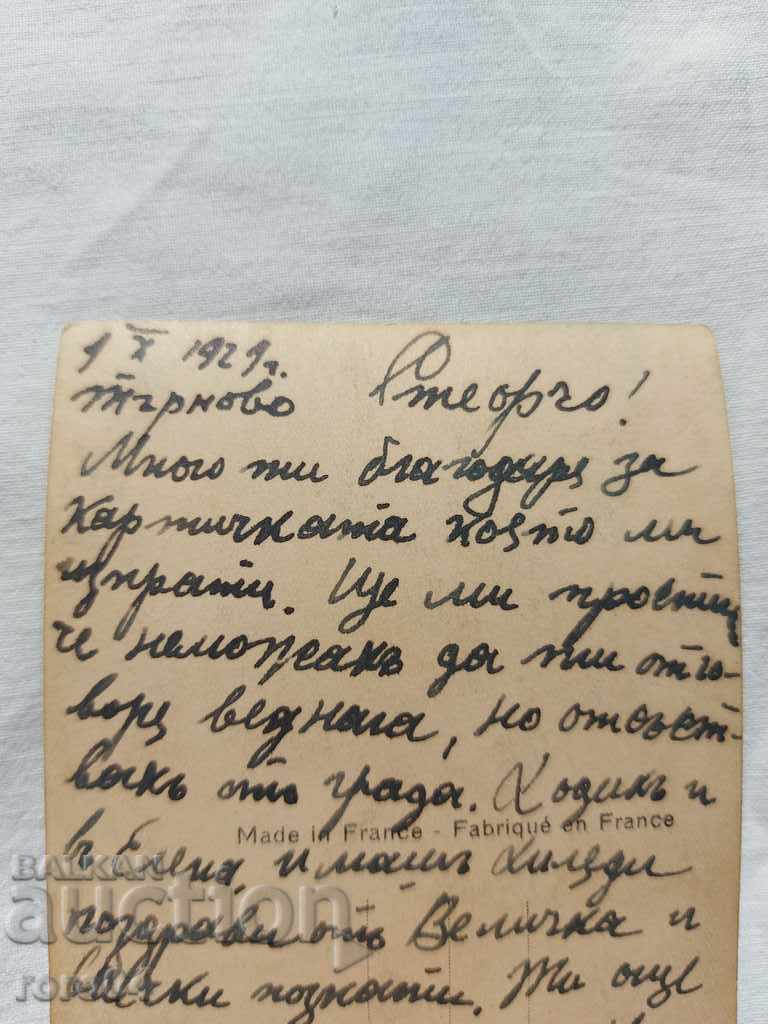 1 X 1929 г.
Търново Стеорчо!
Много ти благодаря за
картичката която ми
изпрати. Ще ми простиш
че неможахъ да ти отго-
воря веднага, но отсъст-
вахъ отъ града. Ходихъ и
Made in France - Fabriqué en France
въ Елена, имашъ хиляди
поздрави отъ Величка и
всички познати. Ти още
BALKAN
auction